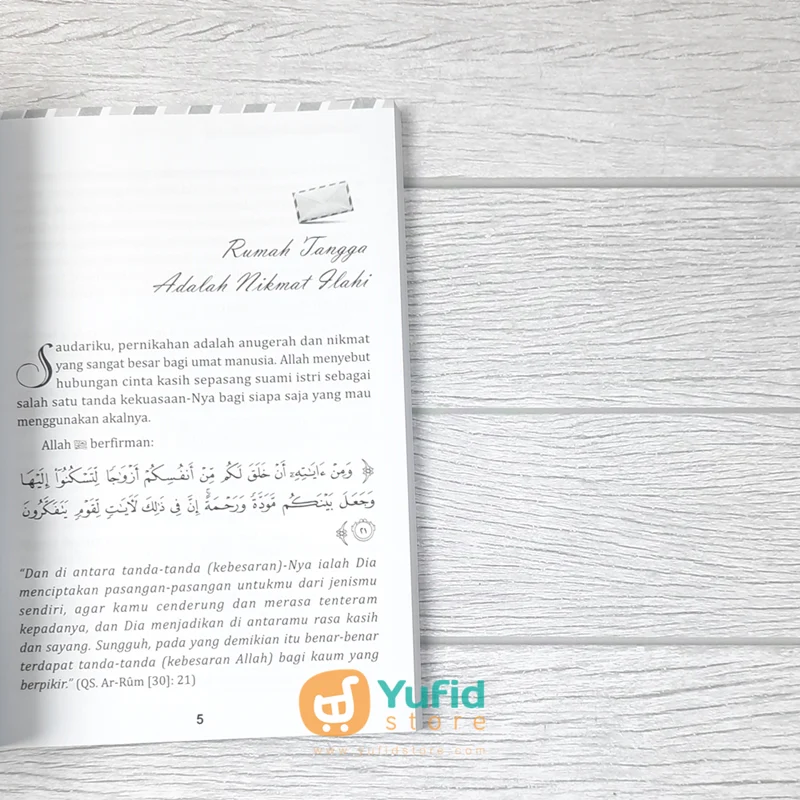 Rumah Tangga
Adalah Nikmat Ilahi
Saudariku, pernikahan adalah anugerah dan nikmat
yang sangat besar bagi umat manusia. Allah menyebut
hubungan cinta kasih sepasang suami istri sebagai
salah satu tanda kekuasaan-Nya bagi siapa saja yang mau
menggunakan akalnya.
Allah ﷻ berfirman:
﴿ وَمِنْ ءَايَٰتِهِۦٓ أَنْ خَلَقَ لَكُم مِّنْ أَنفُسِكُمْ أَزْوَٰجًا لِّتَسْكُنُوٓا۟ إِلَيْهَا
وَجَعَلَ بَيْنَكُم مَّوَدَّةً وَرَحْمَةً ۚ إِنَّ فِى ذَٰلِكَ لَءَايَٰتٍ لِّقَوْمٍ يَتَفَكَّرُونَ
٢١ ﴾
“Dan di antara tanda-tanda (kebesaran)-Nya ialah Dia
menciptakan pasangan-pasangan untukmu dari jenismu
sendiri, agar kamu cenderung dan merasa tenteram
kepadanya, dan Dia menjadikan di antaramu rasa kasih
dan sayang. Sungguh, pada yang demikian itu benar-benar
terdapat tanda-tanda (kebesaran Allah) bagi kaum yang
berpikir.” (QS. Ar-Rûm [30]: 21)
5
Yufid
store
www.yufidstore.com